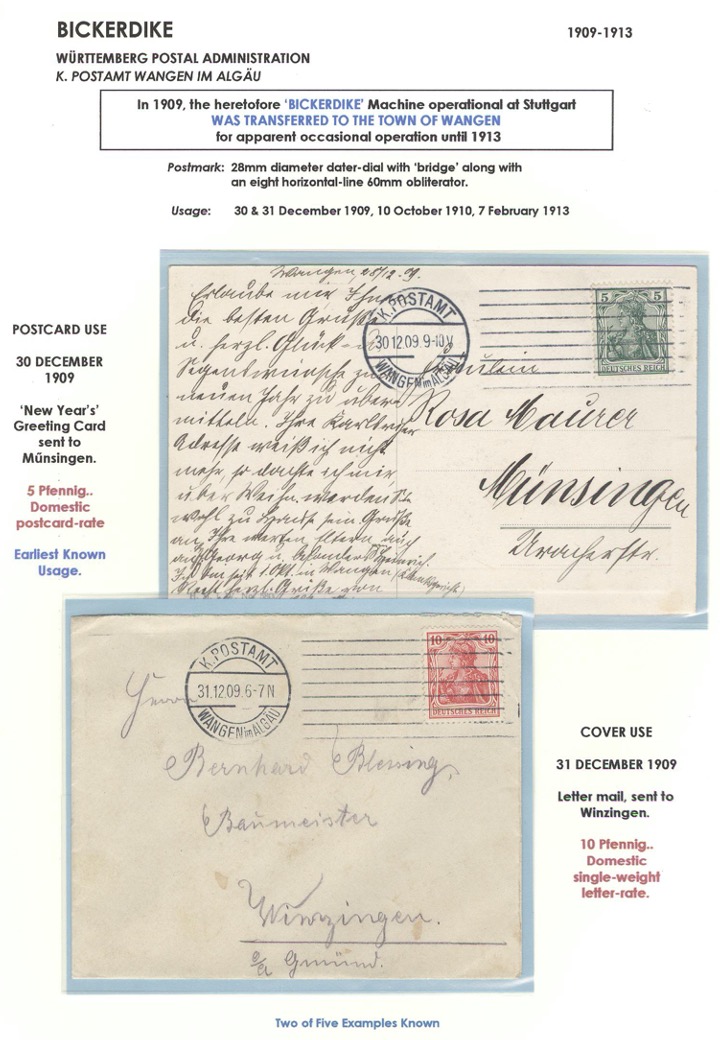 BICKERDIKE
1909-1913
WÜRTTEMBERG POSTAL ADMINISTRATION
K. POSTAMT WANGEN IM ALGÄU
In 1909, the heretofore ‘BICKERDIKE’ Machine operational at Stuttgart
WAS TRANSFERRED TO THE TOWN OF WANGEN
for apparent occasional operation until 1913
Postmark: 28mm diameter dater-dial with ‘bridge’ along with
an eight horizontal-line 60mm obliterator.
Usage: 30 & 31 December 1909, 10 October 1910, 7 February 1913
POSTCARD USE
30 DECEMBER
1909
‘New Year's’
Greeting Card
sent to
Münsingen.
5 Pfennig..
Domestic
postcard-rate
Earliest Known
Usage.
Wangen, 28/12.09.
Erlaube mir Ihnen
die besten Grüße
u. herzl. Glück- u.
Segenswünsche zum
neuen Jahr zu über-
mitteln. Ihre
Adresse weiß ich nicht
mehr, so dachte ich mir,
über Weihn. werden Sie
wohl zu Hause sein Grüße
an Ihre werten Eltern auch
an Georg u.
Ich bin seit 1. Okt. in Wangen
Recht herzl. Grüße von
K. POSTAMT
30 12.09. 9-10V
WANGEN im ALGÄU
5 5
DEUTSCHES REICH
Fräulein
Rosa Maurer
Münsingen
Uracherstr.
K. POSTAMT
31.12.09. 6-7 N
WANGEN im ALGÄU
10 10
DEUTSCHES REICH
Herrn
Bernhard Blessing,
Baumeister
Winzingen.
o/a Gmünd.
COVER USE
31 DECEMBER 1909
Letter mail, sent to
Winzingen.
10 Pfennig..
Domestic
single-weight
letter-rate.
Two of Five Examples Known